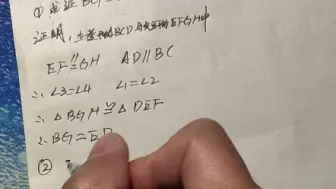 ① 求证 BG=
证明: 在 ABCD EFGH中
EF∥GH AD∥BC
∴ ∠3=∠4 ∠1=∠2
∴ △BGH≌△DEF
∴ BG=ED
②